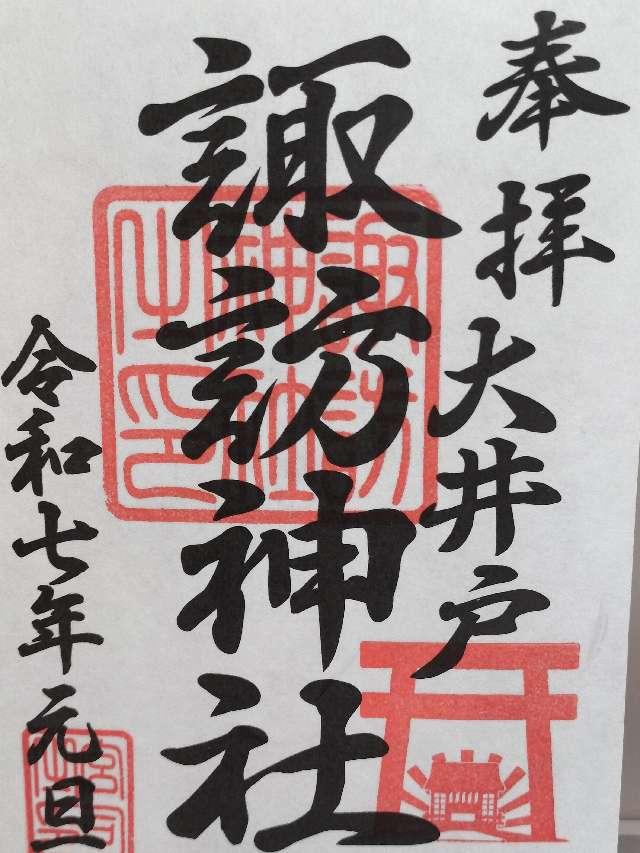 奉拝
大井戸
諏訪神社
令和七年元旦
諏訪神社之印